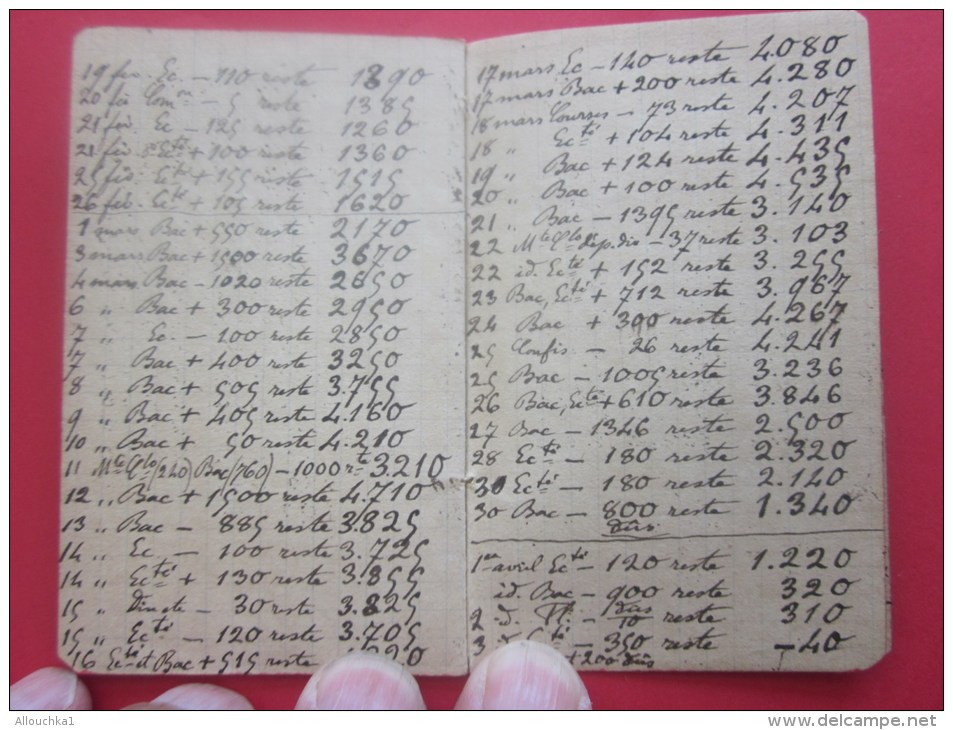 19 fév. Ec. – 110 reste 1390
20 fév – 5 reste 1385
21 fév. Ec – 125 reste 1260
21 fév. Ecté + 100 reste 1360
25 fév. Ecté + 155 reste 1515
26 fév. Ecté + 105 reste 1620
1 mars Bac + 550 reste 2170
3 mars Bac + 1500 reste 3670
4 mars Bac – 1020 reste 2650
6 " Bac + 300 reste 2950
7 " Ec. – 100 reste 2850
7 " Bac + 400 reste 3250
8 " Bac + 505 reste 3.755
9 " Bac + 405 reste 4.160
10 " Bac + 50 reste 4.210
11 Mte Clo (240) Bac (760) – 1000 rte 3.210
12 " Bac + 1500 reste 4.710
13 " Bac – 885 reste 3.825
14 " Ec – 100 reste 3.725
14 " Ecté + 130 reste 3.855
15 " – 30 reste 3.825
15 " Ecté – 120 reste 3.705
16 Ecté et Bac + 515 reste 4.220
17 mars Ec – 140 reste 4.080
17 mars Bac + 200 reste 4.280
18 mars Courses – 73 reste 4.207
18 " Ecté + 104 reste 4.311
19 " Bac + 124 reste 4.435
20 " Bac + 100 reste 4.535
21 " Bac – 1395 reste 3.140
22 Mte Clo Rép. dio – 37 reste 3.103
22 id. Ecté + 152 reste 3.255
23 Bac, Ecté + 712 reste 3.967
24 Bac + 300 reste 4.267
25 Confis – 26 reste 4.241
25 Bac – 1005 reste 3.236
26 Bac, Ecté + 610 reste 3.846
27 Bac – 1346 reste 2.500
28 Ecté – 180 reste 2.320
30 Ecté – 180 reste 2.140
30 Bac – 800 reste 1.340
dûs
1er avril Ecté – 120 reste 1.220
id. Bac – 900 reste 320
dûs
2 d. – 10 reste 310
3 d. – 350 reste – 40
+ 200 dûs
Allouchka1
www.delcampe.net